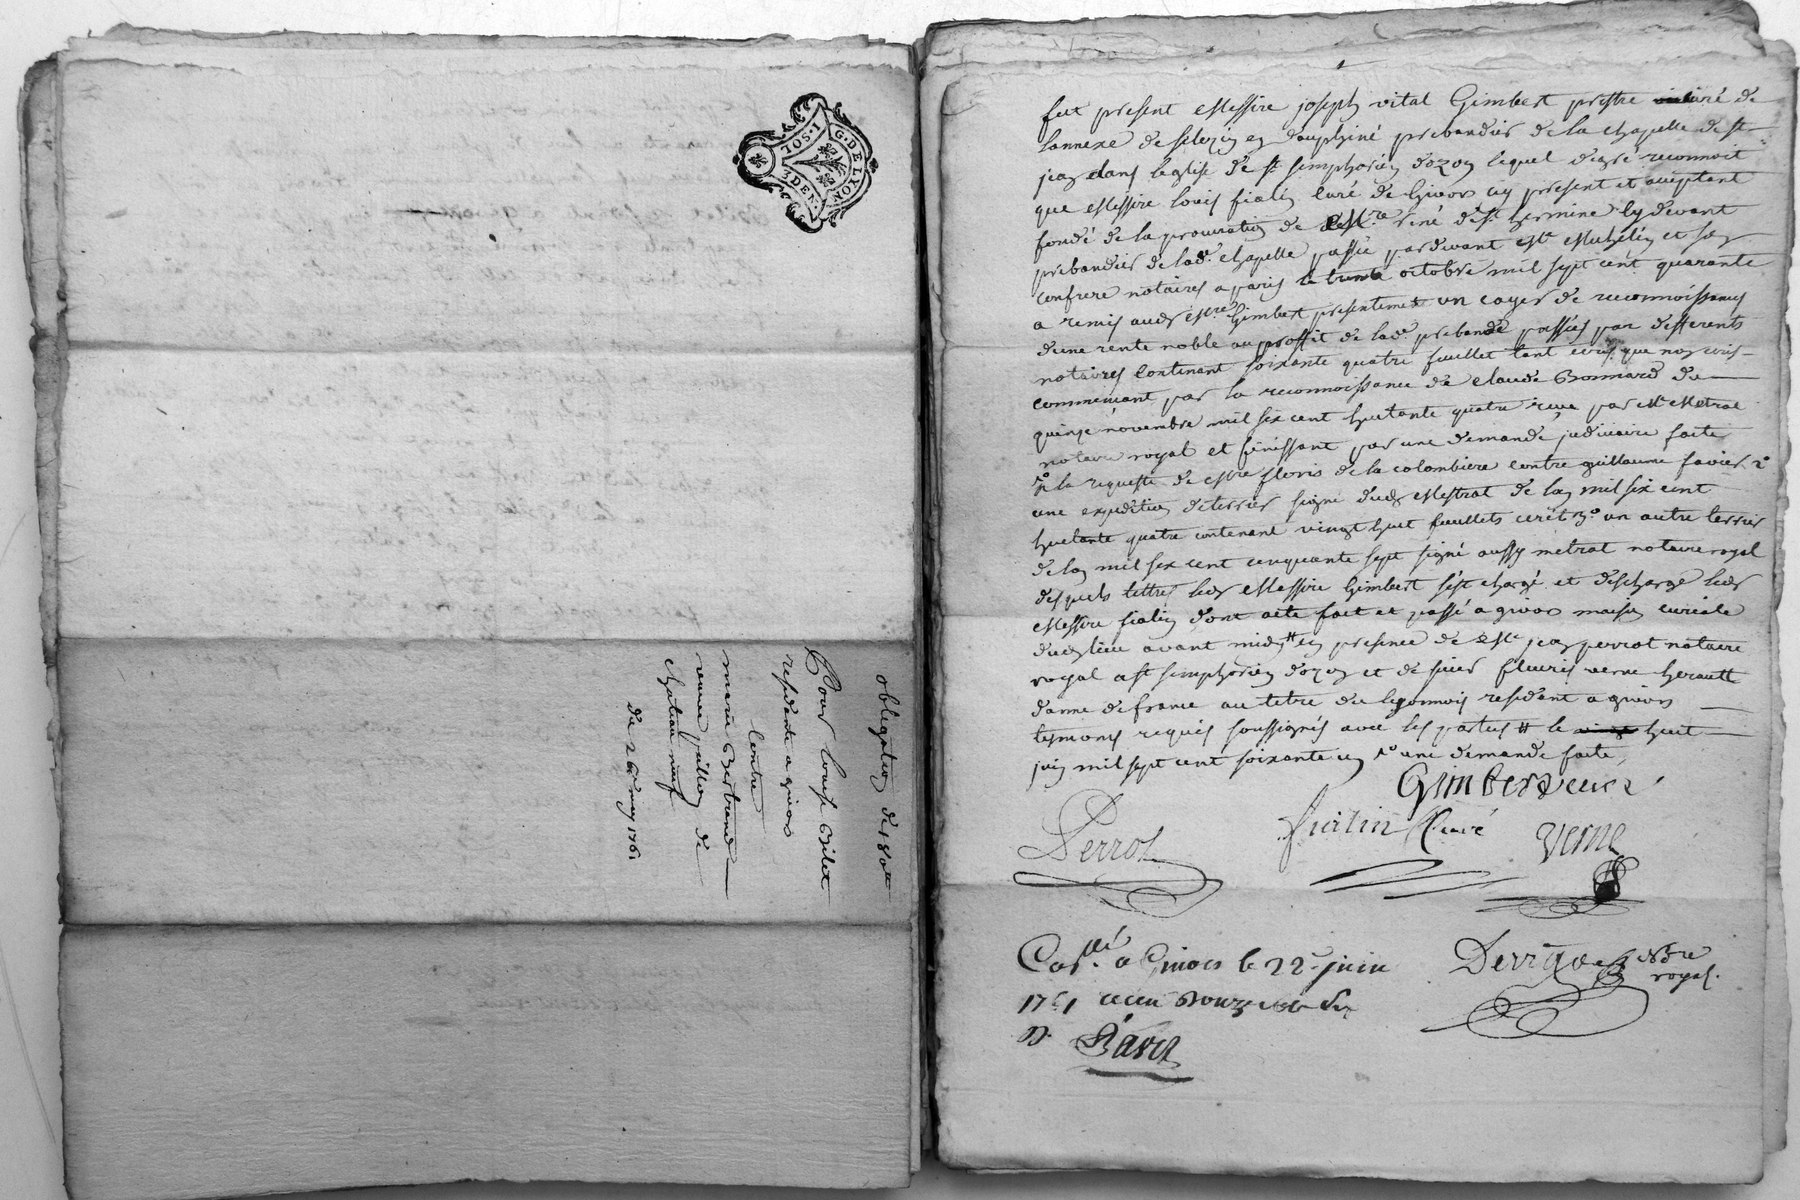 G. DE LYON
1 SOL. 1
3 DEN.
obligation de 180 tt
Pour Louis Bilet
residente a givors
Contre
marie Bertrand
veuve pillion de
chateau neuf
du 26 may 1761
fut present Messire joseph vital Gimbert prestre curé de
lannexe de selezin en dauphiné prebandier de la chapelle de st
jean dans leglise de st simphorien dozon lequel degré reconnoit
que Messire Louis fialin curé de Givors cy present et aceptant
fondé de la procuration de Mre rené de st hermine cy devant
prebandier de lade. chapelle passée pardevant Me Muhélin et son
confrere notaires a paris le trente octobre mil sept cent quarante
a remis audt Mre Gimbert presentement un cayer de reconnoissances
dune rente noble au proffit de lade. prebande passées par differents
notaires Contenant soixante quatre feuillet tant ecris que non ecris
commencant par la reconnoissance de claude Bonnard du
quinze novembre mil six cent huitante quatre reçue par Me Metral
notaire royal et finissant par une demande judiciaire faitte
a la requeste de Mre floris de la colombiere contre guillaume favier 2°
une expedition de terrier signé dudt Mestral de lan mil six cent
huitante quatre contenant vingt huit feuillets ecris et 3° un autre terrier
de lan mil six cent cinquante sept signé aussy metral notaire royal
desquels tittres ledt Messire Gimbert sest chargé et descharge ledt
Messire fialin dont acte fait et passé a givors maison curiale
dudt lieu avant midy # en presence de Me jean perrot notaire
royal a st simphorien dozon et de sieur fleuris verne herault
darme de france au tittre du lyonnois residant a givors
tesmoins requis soussignés avec les parties # le huit
juin mil sept cent soixante un 1° une demande faite
Gimbert curé
Perrot
fialin Curé
verne
Conllé a Givors le 22e juin
1761 recu Douze sols
D. Bavet
Devigne Nore
royal.